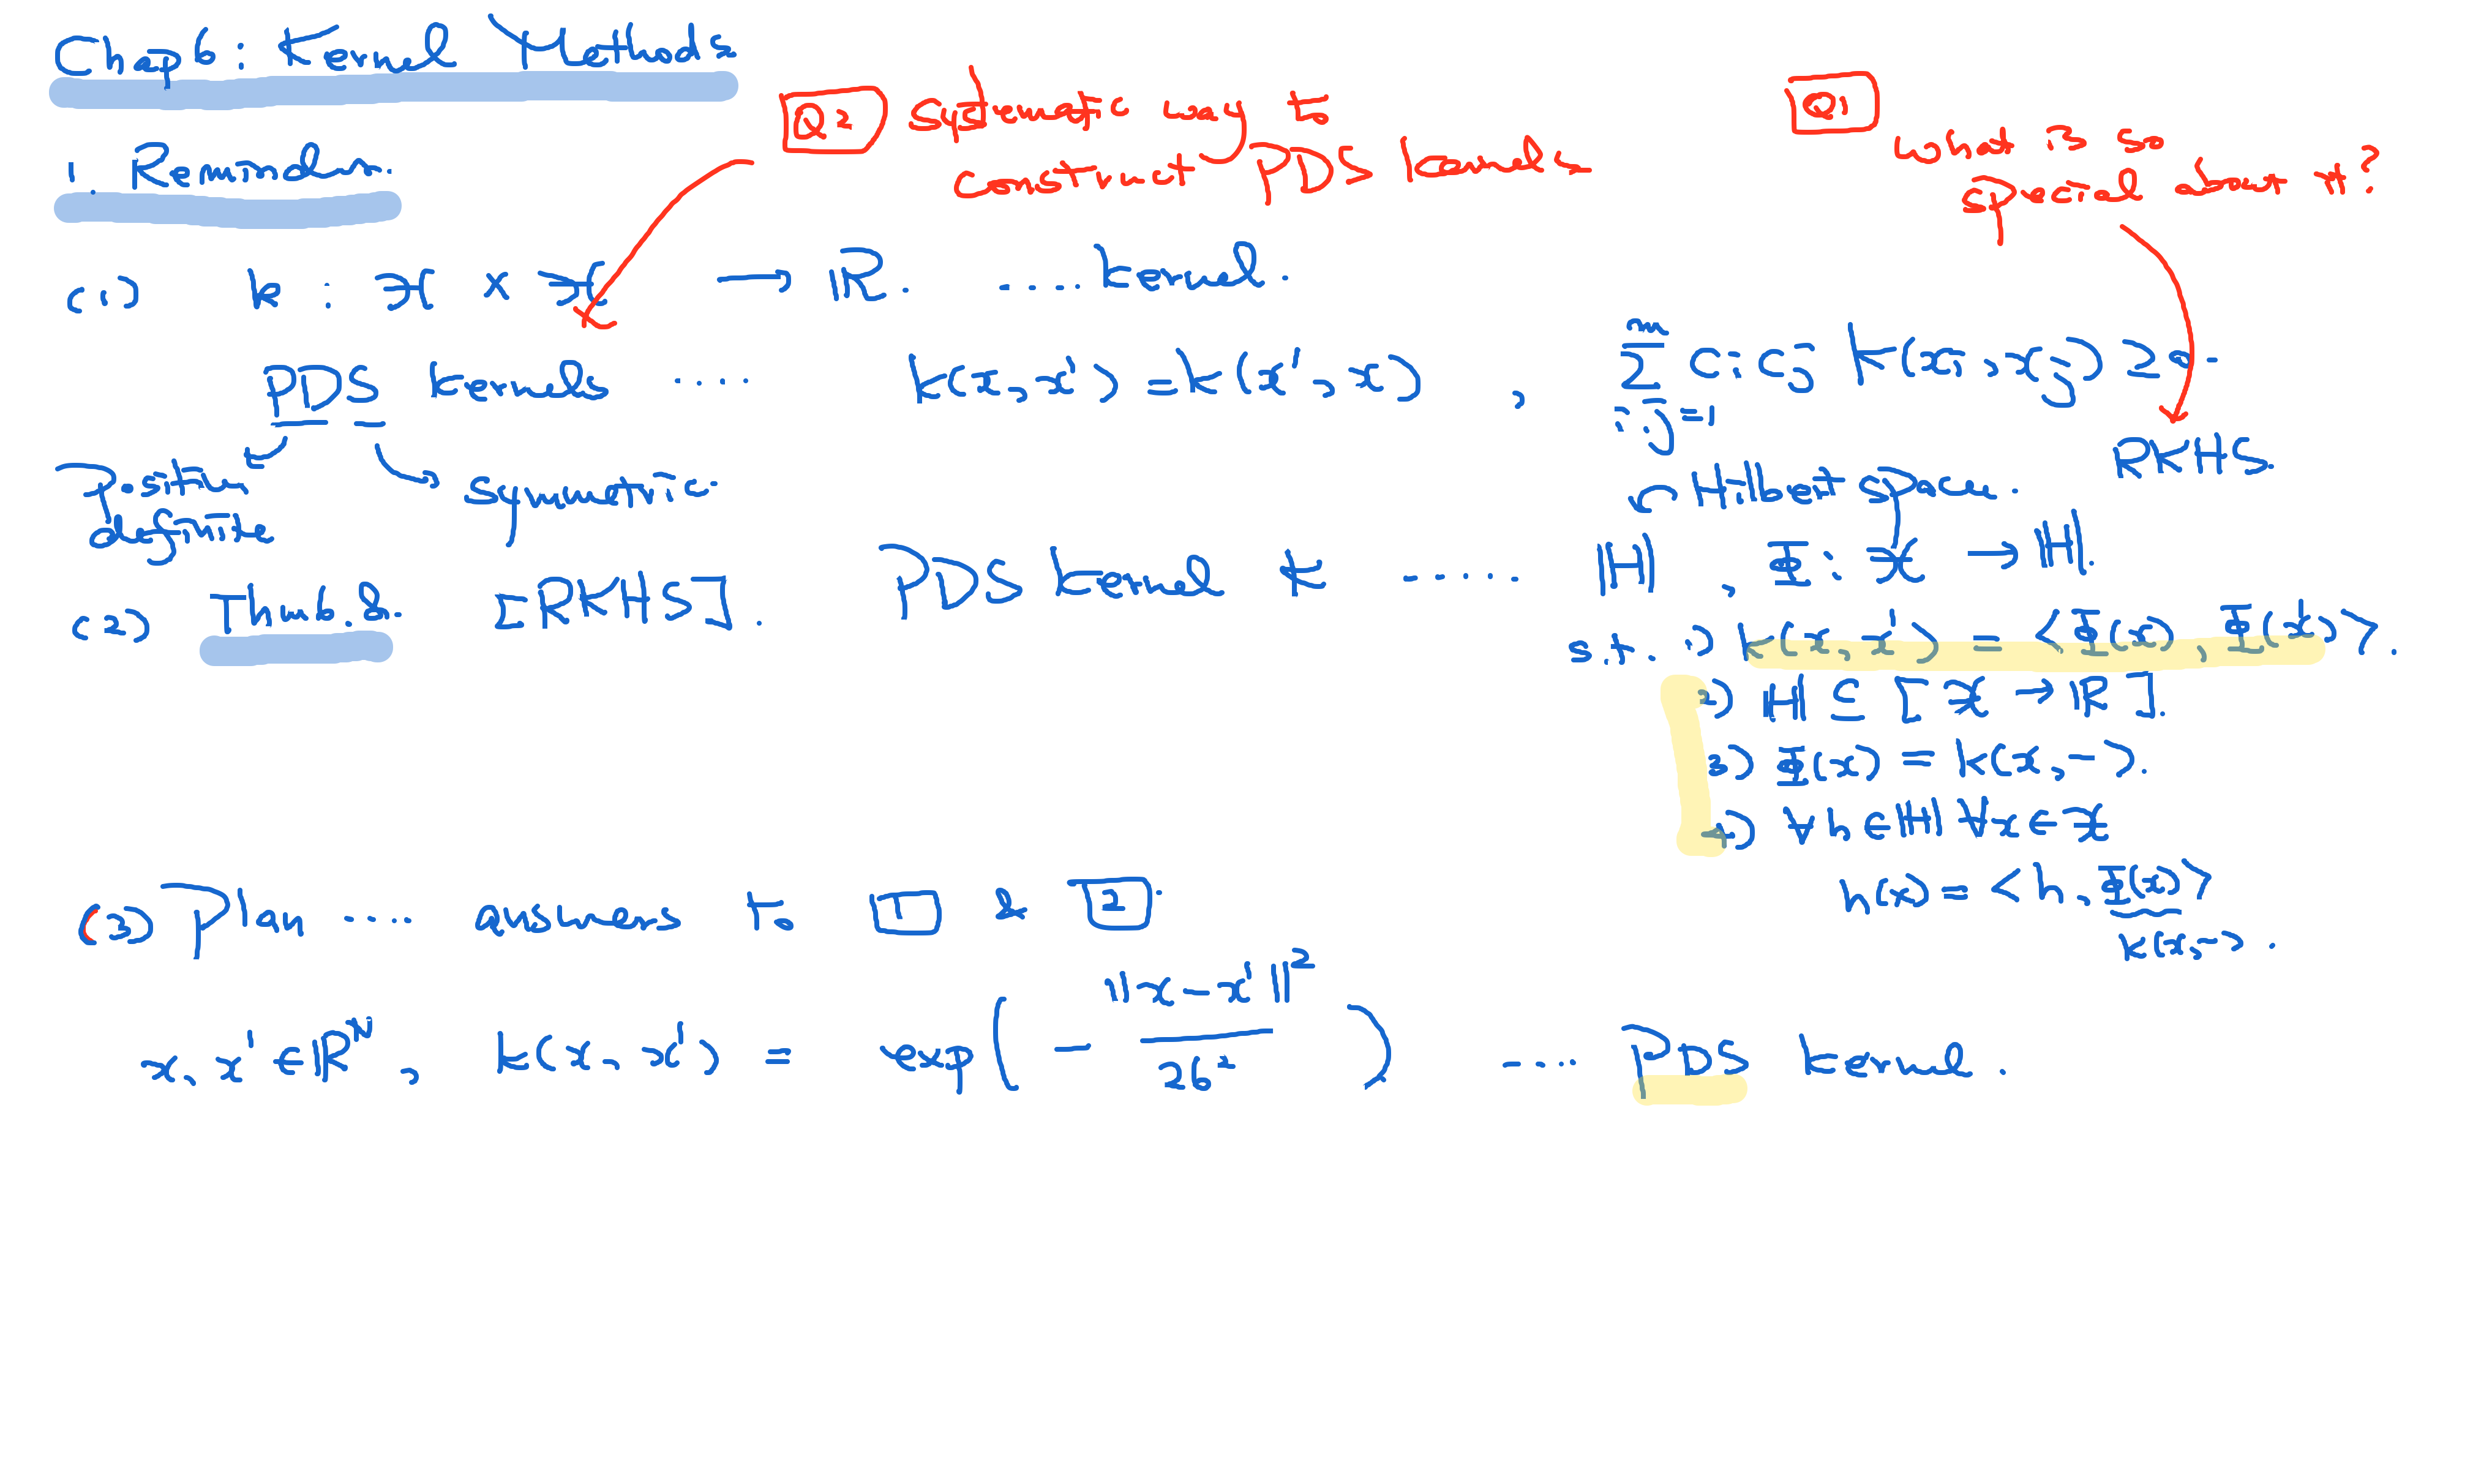 Chap 6: Kernel Methods
1. Reminder.
Q2 systematic way to construct PDS kernels
Q1 what is so special about it?
(1) k : X × X → R. ..... kernel.
PDS kernels .... k(x, x') = k(x', x) , Σ_{i,j=1}^m c_i c_j k(x_i, x_j) ≥ 0.
Positive definite
symmetric
RKHS.
Hilbert space.
(2) Thm 6.8. [RKHS]. PDS kernel k ..... H , Φ: X → H.
s.t. 1) k(x, x') = <Φ(x), Φ(x')>.
2) H ⊆ [X → R].
3) Φ(x) = k(x, -).
4) ∀h ∈ H ∀x ∈ X
h(x) = <h, Φ(x)>
k(x, -).
(3) Plan .... answers to 1 & 2.
x, x' ∈ R^N, k(x, x') = exp( - ||x - x'||² / 2σ² ) .... PDS kernel.